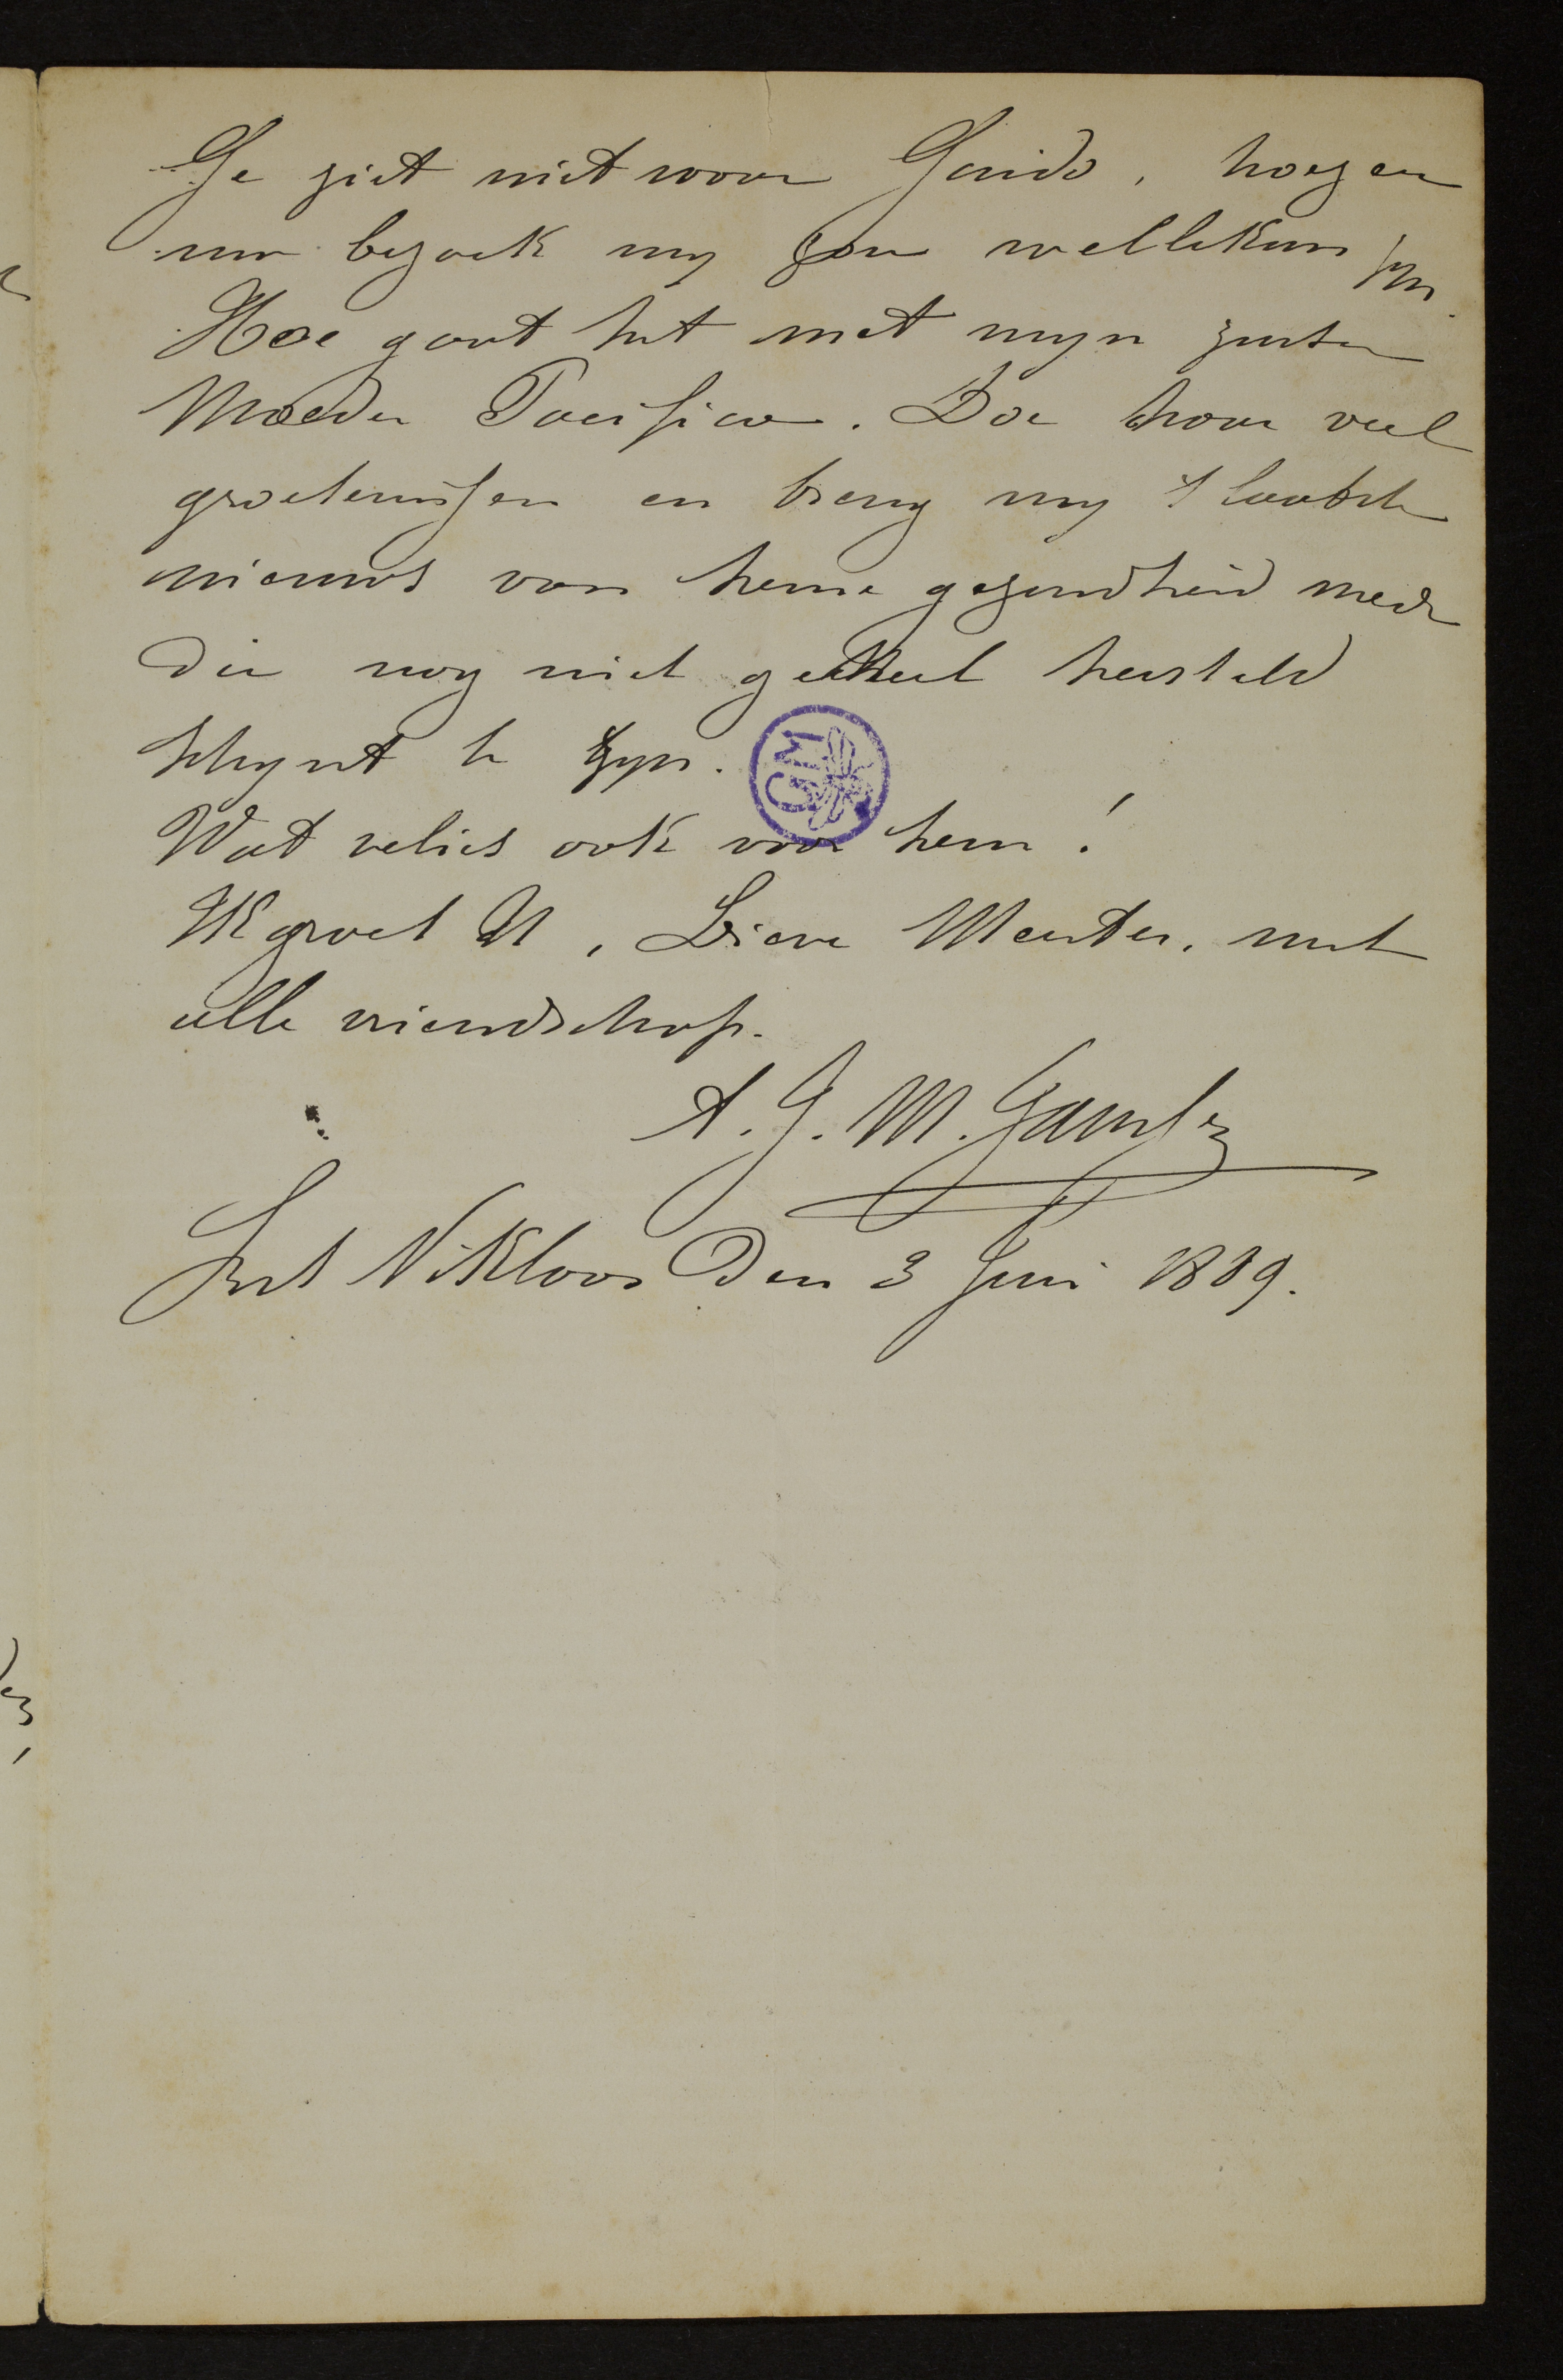 Ge ziet niet waar Guido, hoezeer
uw bezoek my zou wellekom zyn.
Hoe gaat het met myn zuster
Moeder Pacifica. Doe haar veel
groetenissen en breng my 't laatste
nieuws van heure gezondheid mede
die nog niet geheel hersteld
schynt te zyn.
GM
Wat verlies ook voor hem!
Ik groet U, Lieve Meester, met
alle vriendschap.
A. J. M. Janssens
Sint Nikloos Den 3 Juni 1889.